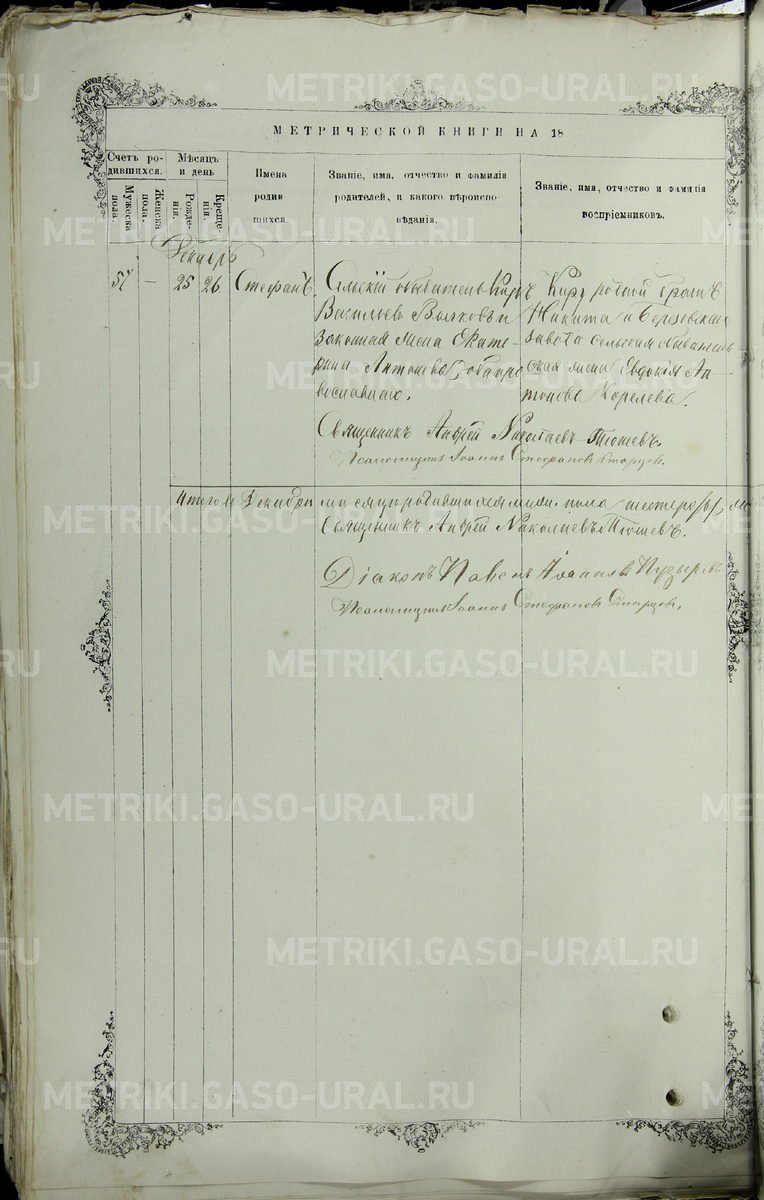 METRIKI.GASO-URAL.RU
МЕТРИЧЕСКОЙ КНИГИ НА 18
Счетъ ро-
дившихся.
Мужеска
пола.
Женска
пола.
Мѣсяцъ
и день
Рожде-
нія.
Креще-
нія.
Имена
родив-
шихся.
Званіе, имя, отчество и фамилія
родителей, и какого вѣроиспо-
вѣданія.
Званіе, имя, отчество и фамилія
воспріемниковъ.
Декабрь
57 — 25 26 Стефанъ.
Сельскій обыватель Киръ
Васильевъ Волковъ и
законная жена Екате-
рина Антонова, оба пра-
вославные.
Киру родной братъ
Никита и Березовскаго
завода сельскаго обывателя
жена Евдокія Ан-
тонова Королева.
Священникъ Андрей Николаевъ Тюшевъ.
Псаломщикъ Іоаннъ Стефановъ Старцевъ.
Итого въ Декабрѣ мѣсяцѣ родившихся муж. пола четверо
Священникъ Андрей Николаевъ Тюшевъ.
Діаконъ Павелъ Іоанновъ Пузыревъ
Псаломщикъ Іоаннъ Стефановъ Старцевъ.